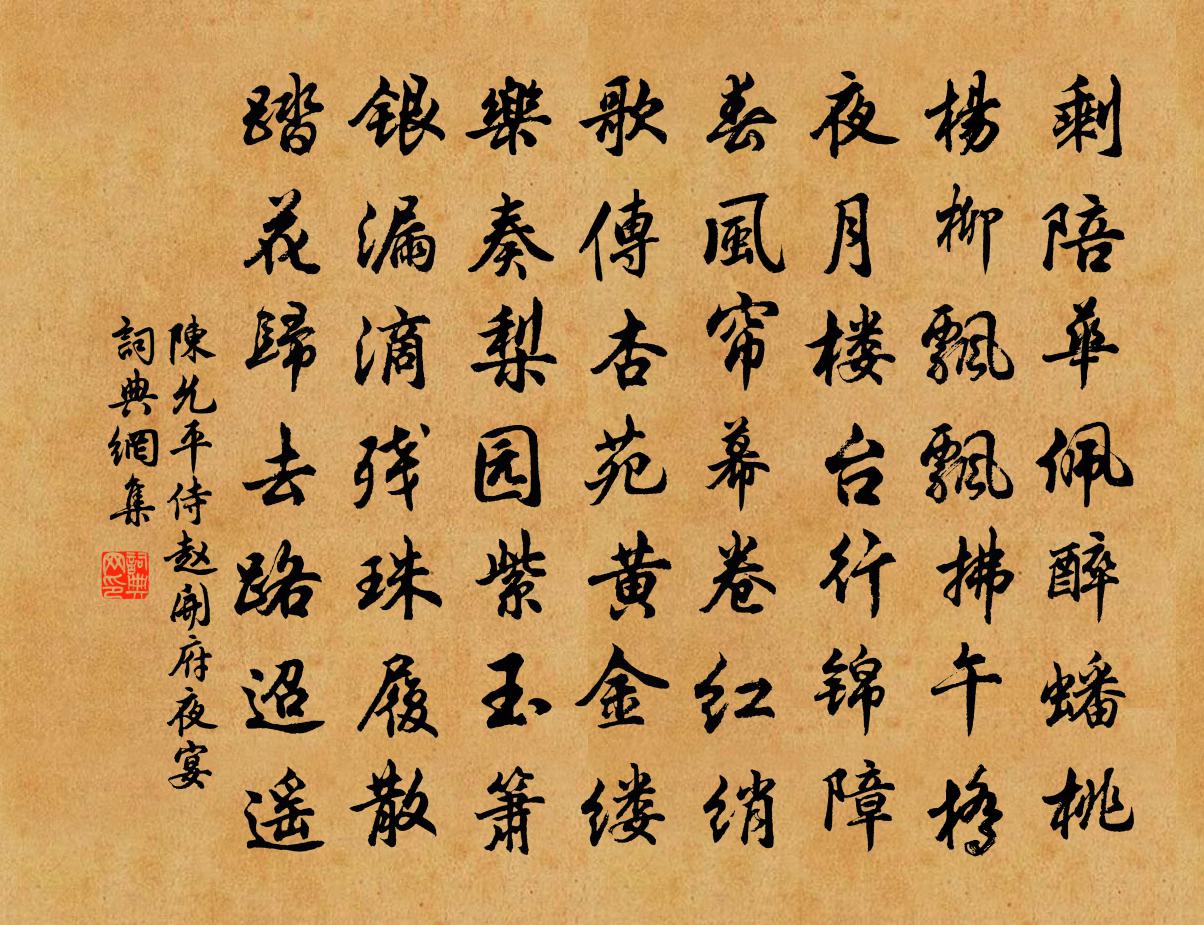 剩陪華佩醉蟠桃
楊柳飄飄拂午橋
夜月楼台行锦障
春風帘幕卷红绡
歌傳杏苑黄金缕
樂奏梨园紫玉箫
銀漏滴残珠履散
踏花歸去路迢遥
陳允平侍赵開府夜宴
詞典網集
詞典网印